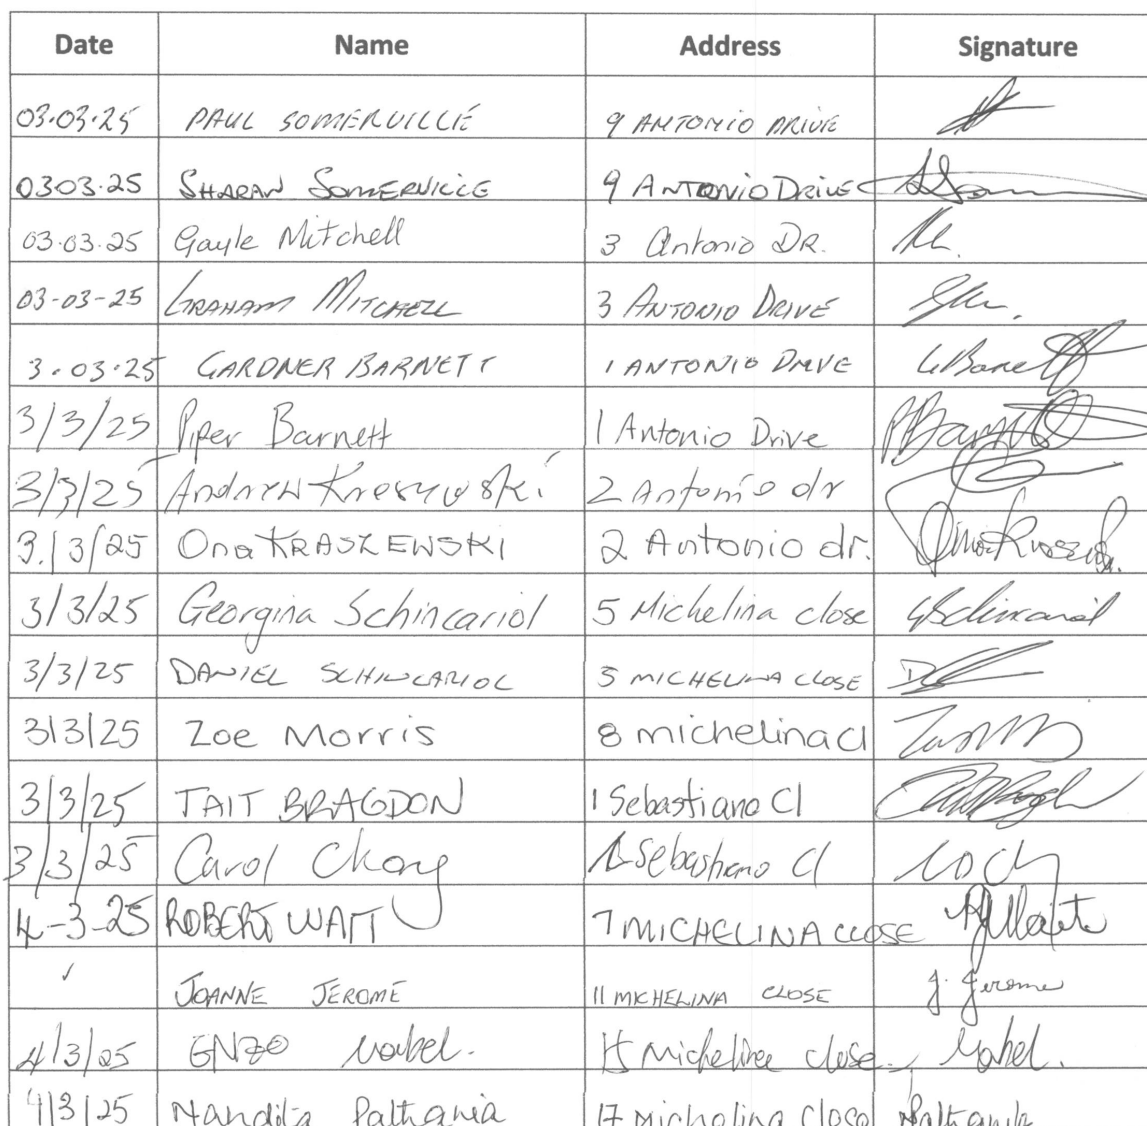 Date Name Address Signature
03.03.25 PAUL SOMERVILLE 9 ANTONIO DRIVE
0303.25 SHARAN SOMERVILLE 9 ANTONIO DRIVE
03.03.25 Gayle Mitchell 3 Antonio DR.
03-03-25 GRAHAM MITCHELL 3 ANTONIO DRIVE
3.03.25 GARDNER BARNETT 1 ANTONIO DRIVE G Barnett
3/3/25 Piper Barnett 1 Antonio Drive PBarnett
3/3/25 Andrew 2 Antonio dr
3/3/25 Ona KRASZEWSKI 2 Antonio dr.
3/3/25 Georgina Schincariol 5 Michelina close GSchincariol
3/3/25 DANIEL SCHINCARIOL 5 MICHELINA CLOSE
3/3/25 Zoe Morris 8 michelina cl
3/3/25 TAIT BRAGDON 1 Sebastiano Cl
3/3/25 Carol 1 Sebastiano Cl
4-3-25 ROBERT WATT 7 MICHELINA CLOSE
JOANNE JEROME 11 MICHELINA CLOSE J. Jerome
4/3/25 ENZO 15 Michelina close
4/3/25 Nandita Pathania 17 Michelina Close Pathania